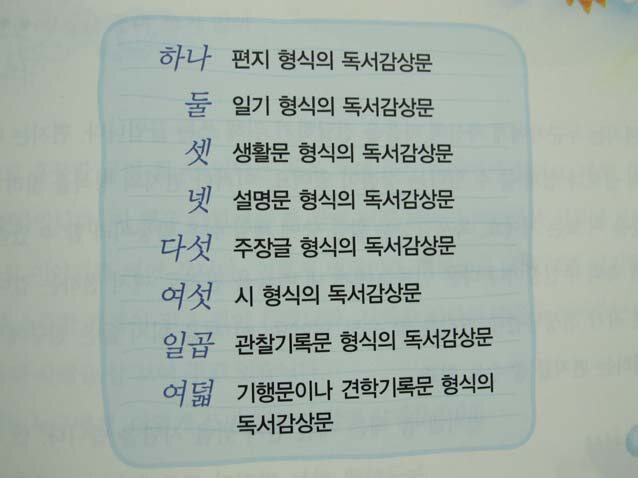 하나 편지 형식의 독서감상문
둘 일기 형식의 독서감상문
셋 생활문 형식의 독서감상문
넷 설명문 형식의 독서감상문
다섯 주장글 형식의 독서감상문
여섯 시 형식의 독서감상문
일곱 관찰기록문 형식의 독서감상문
여덟 기행문이나 견학기록문 형식의
독서감상문